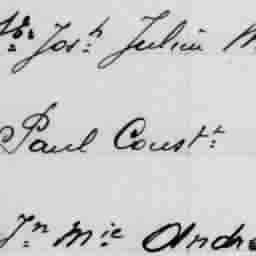 Jos.h Julien
Paul Cous.tt
J.n M.ie André